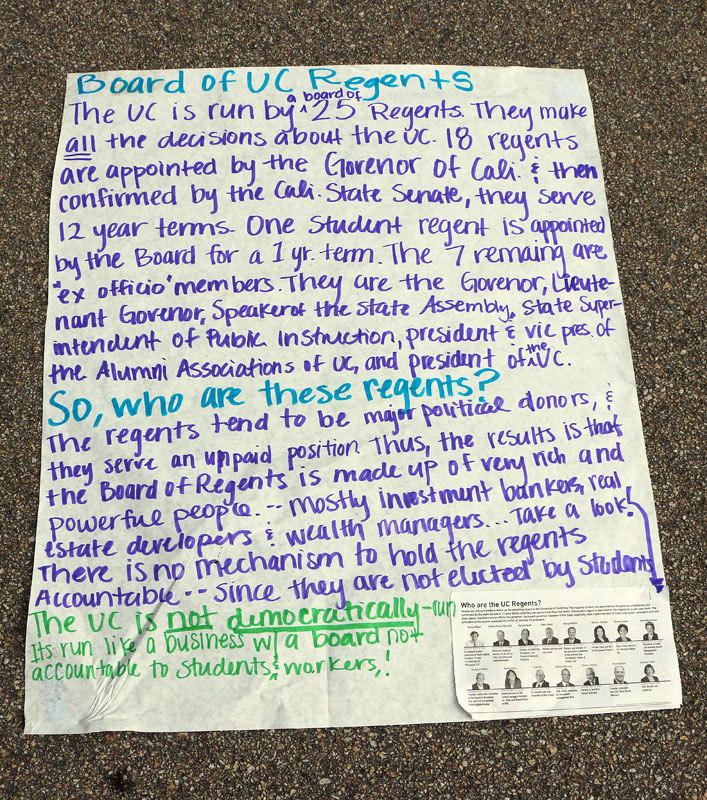 Board of UC Regents
The UC is run by ^ a board of 25 Regents. They make
all the decisions about the UC. 18 regents
are appointed by the Govenor of Cali. & then
confirmed by the Cali. State Senate, they serve
12 year terms. One Student regent is appointed
by the Board for a 1 yr. term. The 7 remaing are
"ex officio" members. They are the Govenor, Lieute-
nant Govenor, Speaker of the State Assembly, State Super-
intendent of Public Instruction, president & vic pres. of
the Alumni Associations of UC, and president of ^ the UC.
So, who are these regents?
The regents tend to be major political donors, &
they serve an unpaid position. Thus, the results is that
the Board of Regents is made up of very rich and
powerful people... mostly investment bankers, real
estate developers & wealth managers... Take a look!
There is no mechanism to hold the regents
Accountable -- since they are not elected by students
The UC is not democratically-run
Its run like a business w/ a board not
accountable to students & workers,!
Who are the UC Regents?